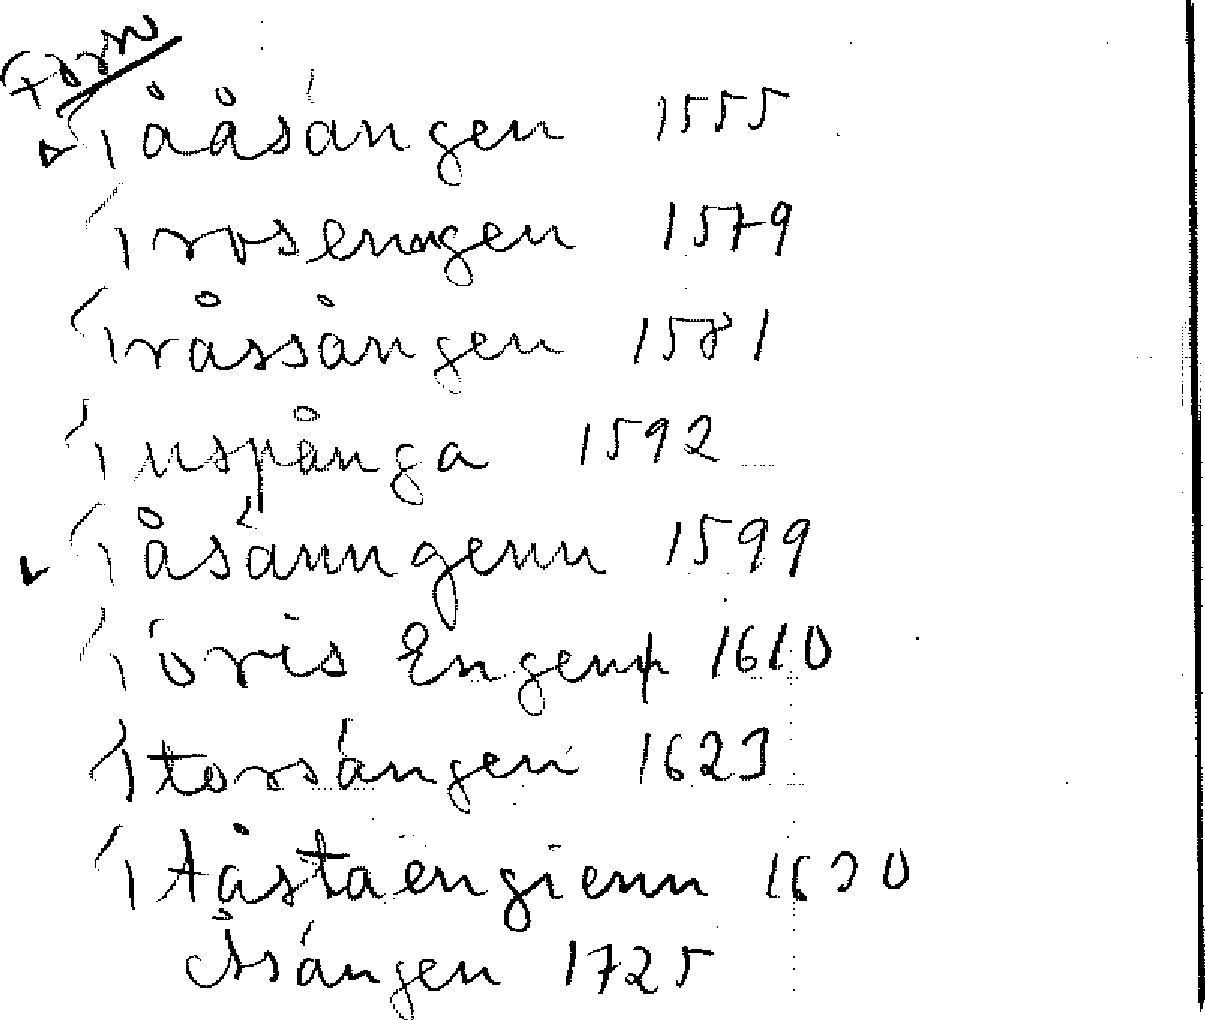 Form
i ååsängen 1555
i rosenngen 1579
i råssången 1581
i uspånga 1592
i åsänngenn 1599
i óris Engenn 1610
i torsängen 1623
i tåstaengienn 1630
Åsängen 1725